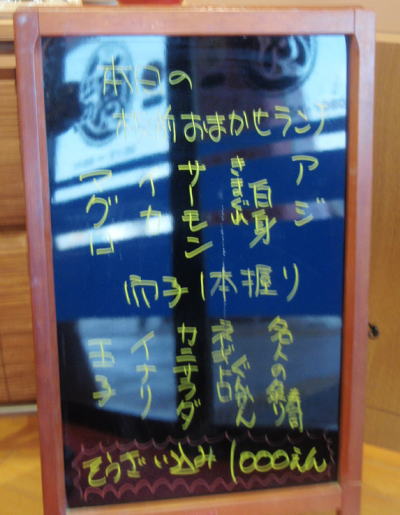 本日の
松前おまかせランチ
アジ
きまぐれ白身
サーモン
イカ
マグロ
穴子1本握り
名人の祭り寿司
ぐんかん
カニサラダ
イナリ
玉子
そうざい込み 1000えん